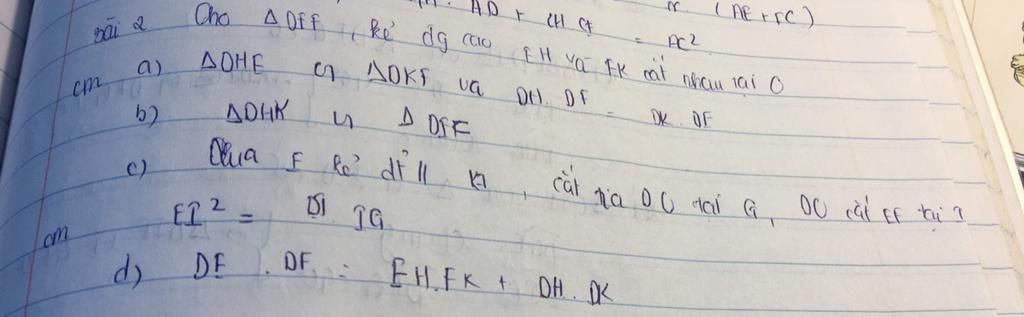 AD + CH. CF = AC² (AE + FC)
Bài 2 Cho Δ DEF, kẻ đg cao EH và FK cắt nhau tại O
cm a) ΔDHE ∽ ΔDKF và DH. DF = DK. DE
b) ΔDHK ∽ Δ DEF
c) Qua F kẻ đt // , cắt tia DO tại G, DO cắt EF tại I
cm EI² = DI IG
d) DE . DF = EH.FK + DH. DK